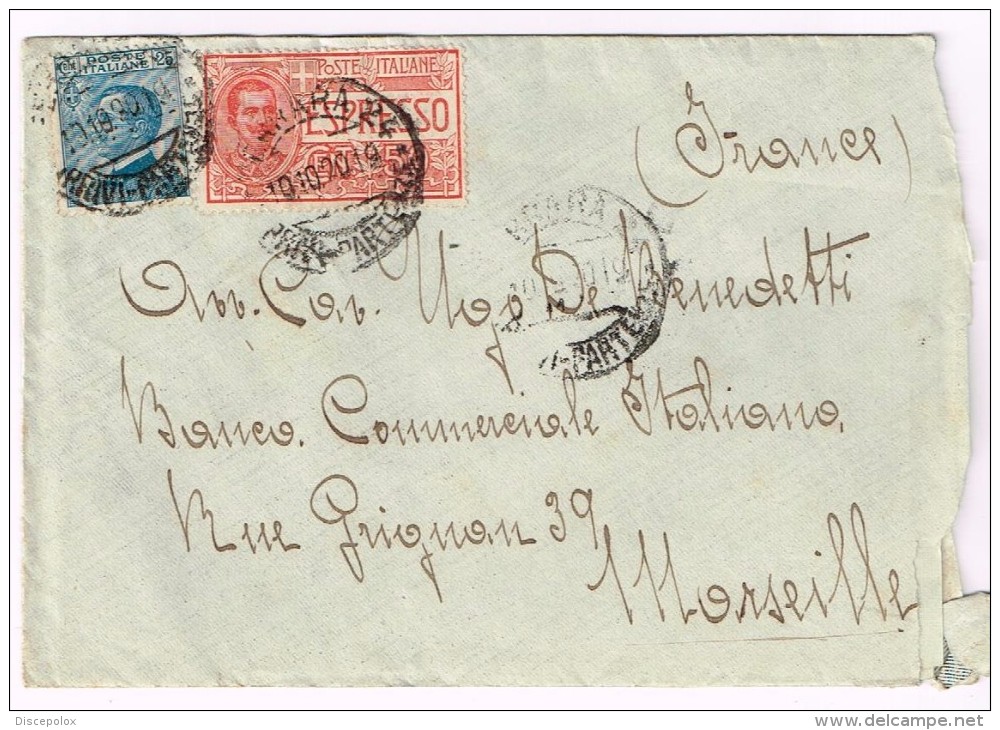 POSTE ITALIANE 25
POSTE ITALIANE
ESPRESSO
10.10.20.19
(France)
Avv. Cav. Ugo De Benedetti
Banca Commerciale Italiana
Rue Grignan 39
Marseille
Discepolox
delcampe.net